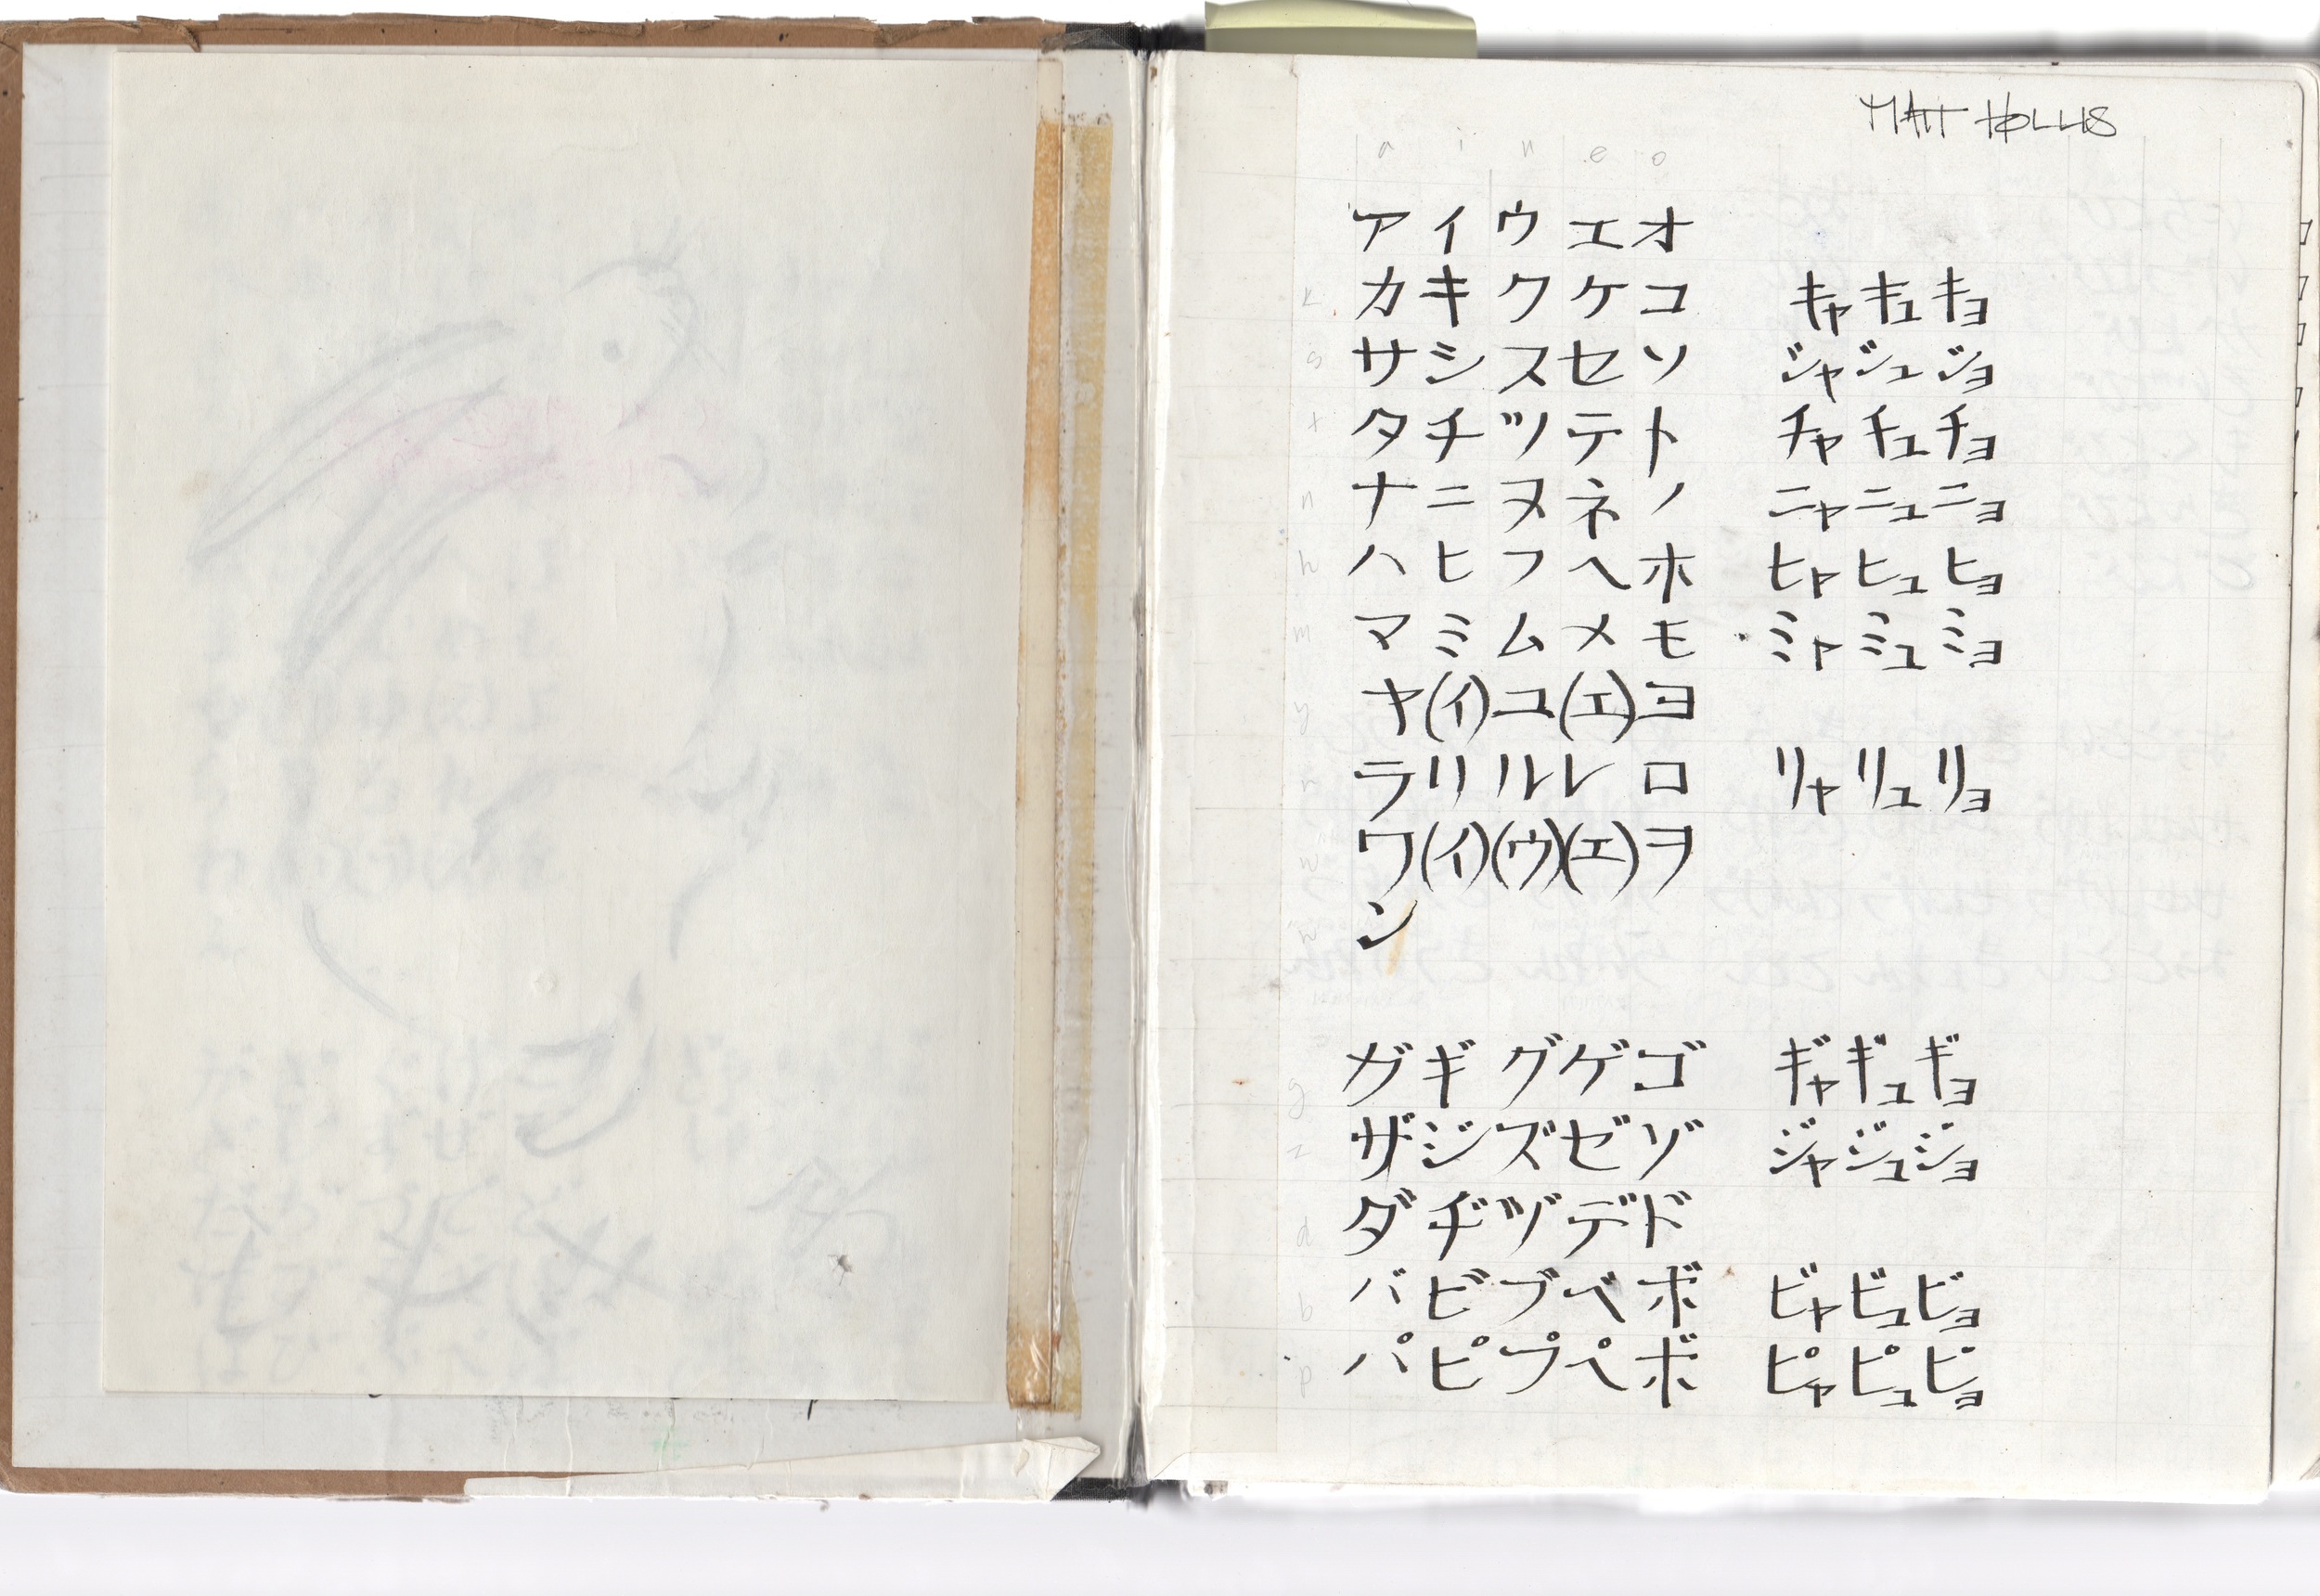 MATT HOLLIS
a i u e o
ア イ ウ エ オ
k カ キ ク ケ コ キャ キュ キョ
s サ シ ス セ ソ ジャ ジュ ジョ
t タ チ ツ テ ト チャ チュ チョ
n ナ ニ ヌ ネ ノ ニャ ニュ ニョ
h ハ ヒ フ ヘ ホ ヒャ ヒュ ヒョ
m マ ミ ム メ モ ミャ ミュ ミョ
y ヤ (イ) ユ (エ) ヨ
r ラ リ ル レ ロ リャ リュ リョ
w ワ (イ) (ウ) (エ) ヲ
n ン
g ガ ギ グ ゲ ゴ ギャ ギュ ギョ
z ザ ジ ズ ゼ ゾ ジャ ジュ ジョ
d ダ ヂ ヅ デ ド
b バ ビ ブ ベ ボ ビャ ビュ ビョ
p パ ピ プ ペ ボ ピャ ピュ ビョ